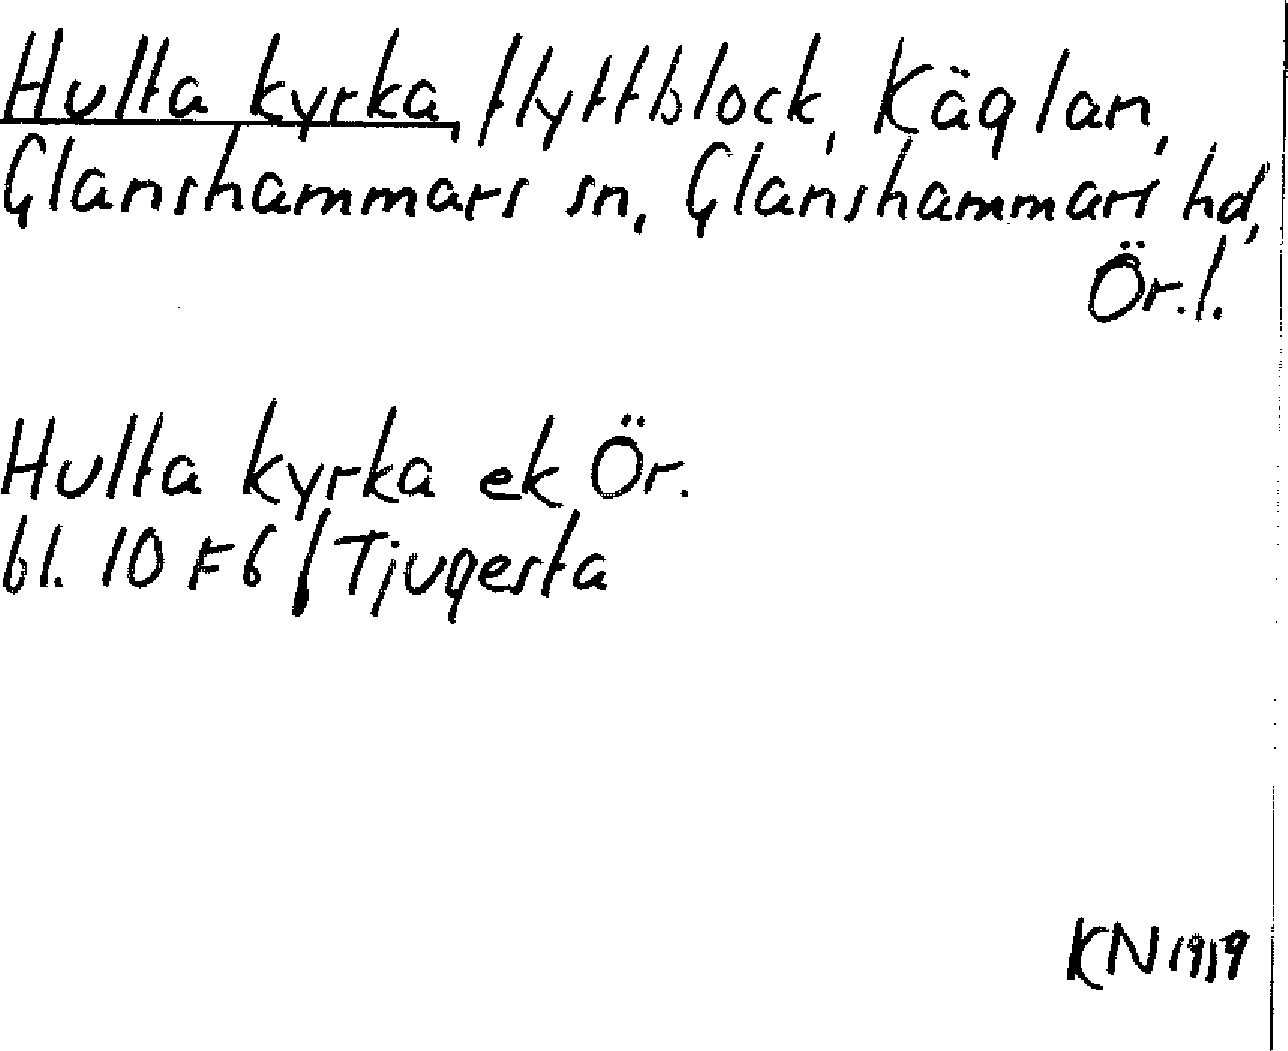 Hulta kyrka, flyttblock, Käglan,
Glanshammars sn, Glanshammars hd,
Ör.l.
Hulta kyrka ek Ör.
bl. 10 F6 / Tjugesta
KN 1919